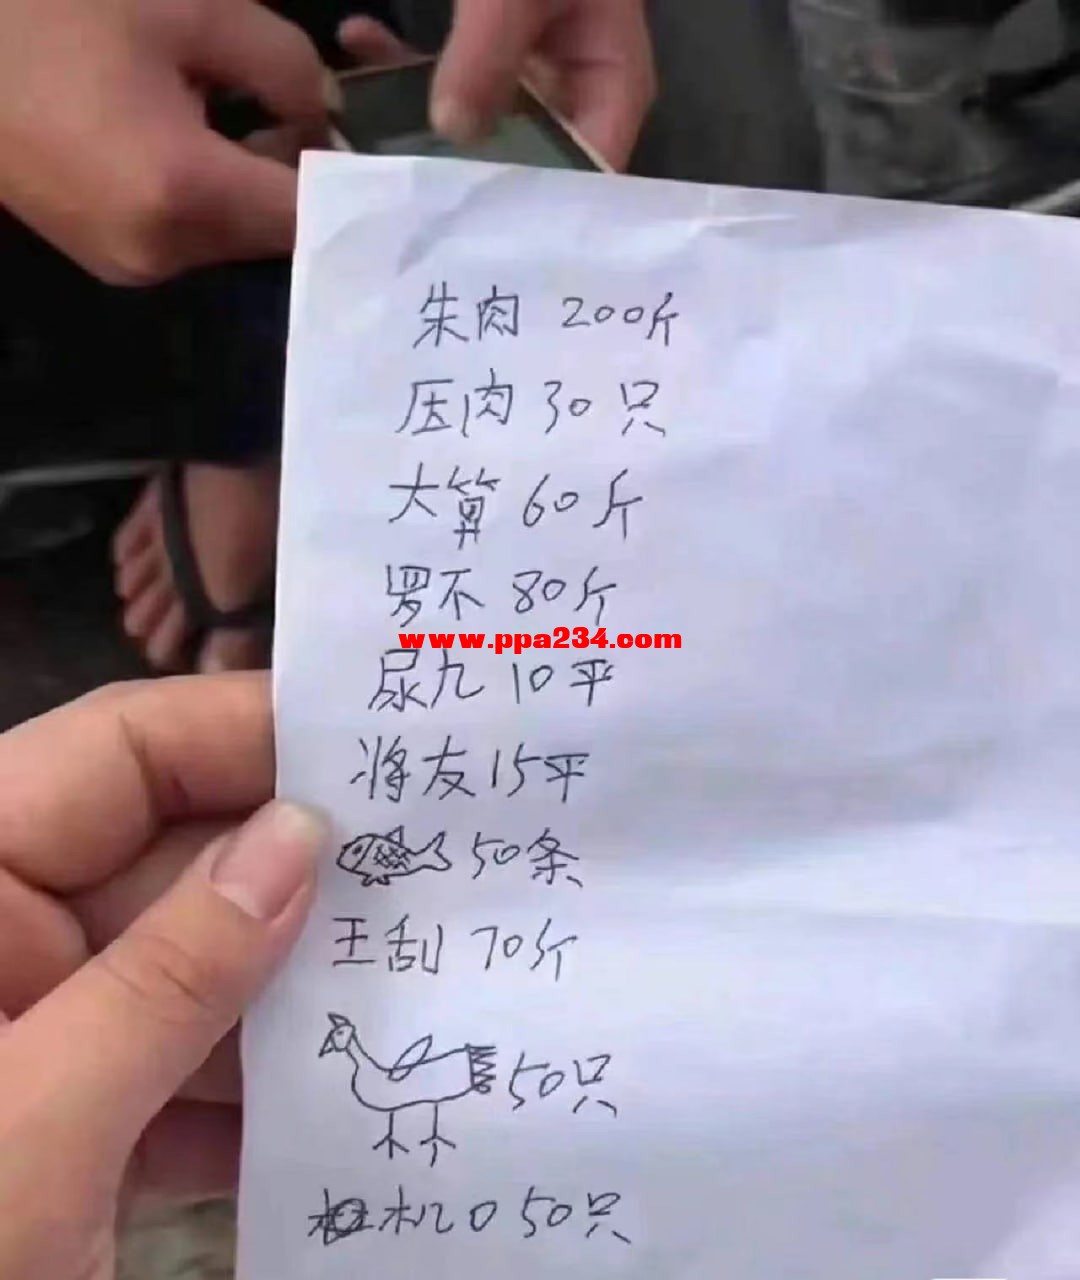 朱肉 200斤
压肉 30只
大算 60斤
罗不 80斤
www.ppa234.com
尿九 10平
将友 15平
50条
王刮 70斤
50只
机 0 50只